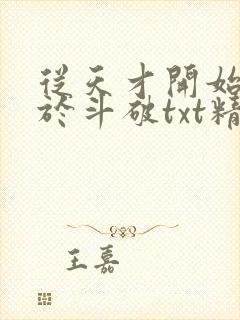 從天才開始
於斗破txt精
王嘉